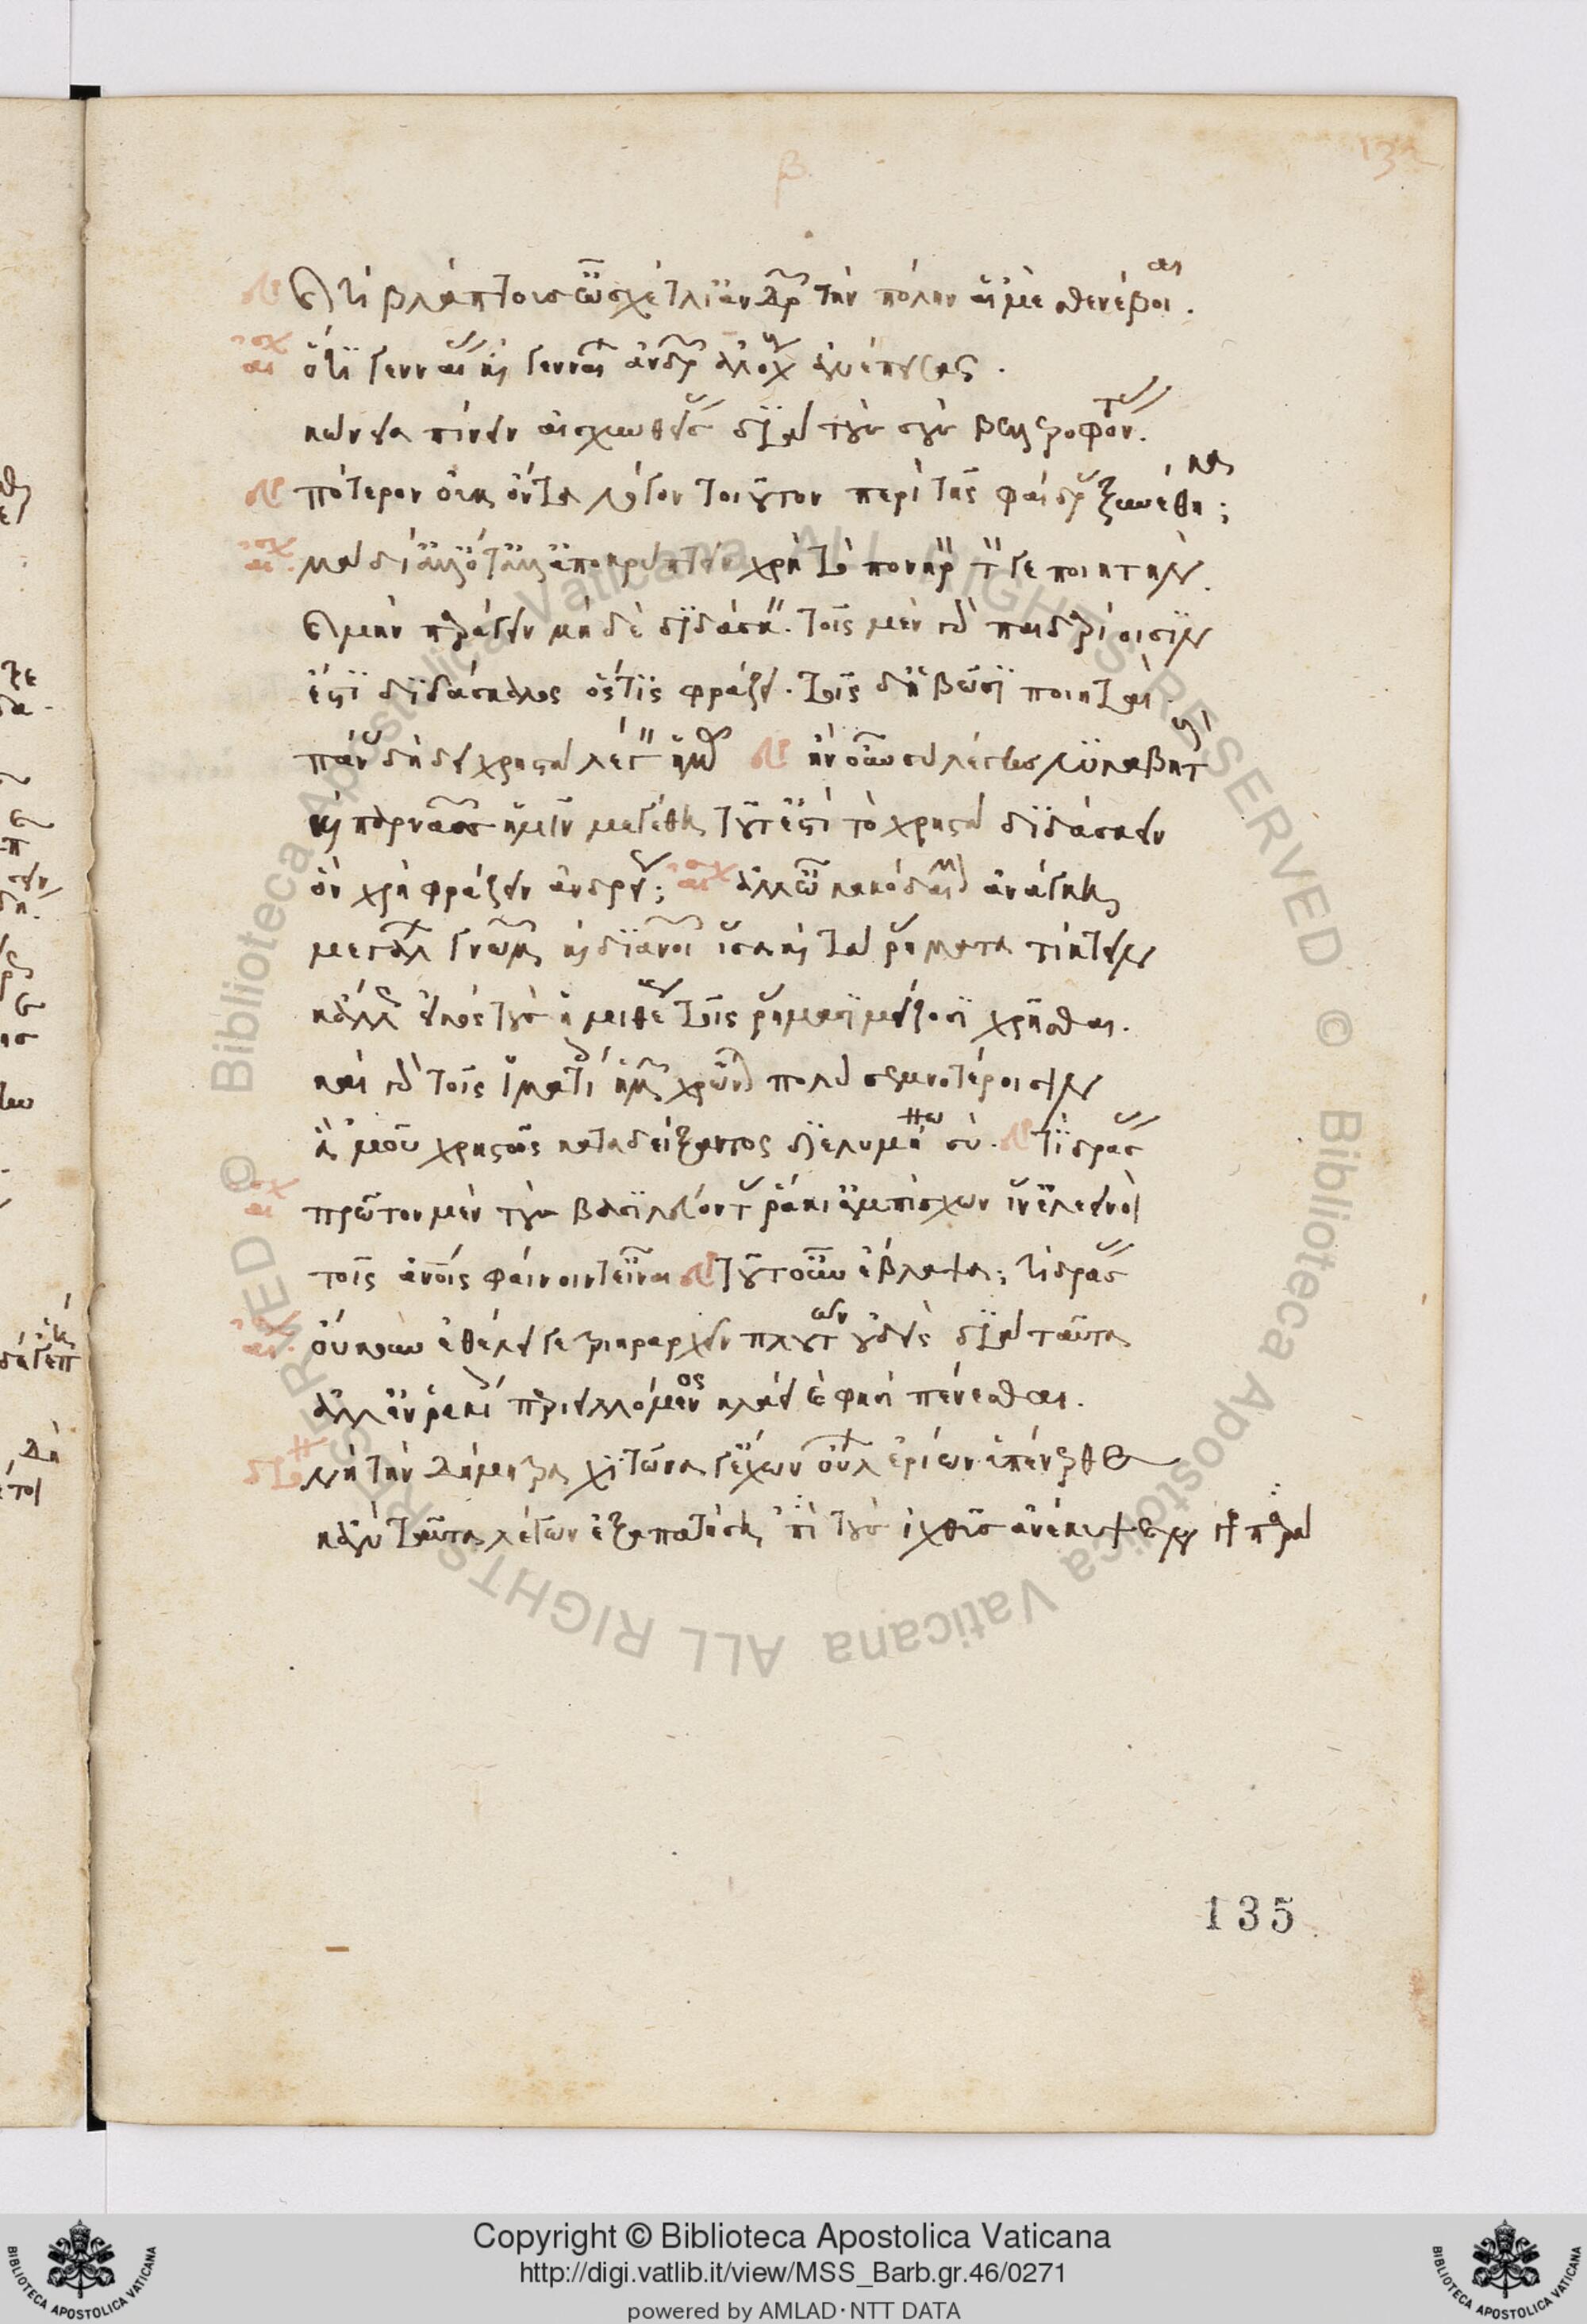 β
132
ευ καὶ τί βλάπτουσ' ὦ σχέτλι' ἀνδρῶν τὴν πόλιν αἱ 'μαὶ σθενέβοιαι.
αἰσχ ὅτι γενναίας καὶ γενναίων ἀνδρῶν ἀλόχους ἀνέπεισας.
κώνεια πίνειν αἰσχυνθείσας διὰ τοὺς σοὺς βελλεροφόντας.
ευ πότερον δ' οὐκ ὄντα λόγον τοιοῦτον περὶ τῆς φαίδρας ξυνέθηκα;
αἰσχ μὰ δί' ἀλλ' ὄντ' ἀλλ' ἀποκρύπτειν χρὴ τὸ πονηρὸν τόν γε ποιητὴν.
καὶ μὴν παράγειν μηδὲ διδάσκειν. τοῖς μὲν γὰρ παιδαρίοισιν
ἐστὶ διδάσκαλος ὅστις φράζει. τοῖς δ' ἡβῶσι ποιηταί.
πάνυ δὴ δεῖ χρηστὰ λέγειν ἡμᾶς ευ ἢν οὖν σὺ λέγῃς λυκαβηττοὺς
καὶ παρνασῶν ἡμῖν μεγέθη τοῦτ' ἐστὶ τὸ χρηστὰ διδάσκειν
ὃν χρὴ φράζειν ἀνθρωπείως; αἰσχ ἀλλ' ὦ κακόδαιμον ἀνάγκη
μεγάλων γνωμῶν καὶ διανοιῶν ἴσα καὶ τὰ ῥήματα τίκτειν
κἄλλως εἰκὸς τοὺς ἡμιθέους τοῖς ῥήμασι μείζοσι χρῆσθαι.
καὶ γὰρ τοῖς ἱματίοις ἡμῶν χρῶνται πολὺ σεμνοτέροισιν
ἃ 'μοῦ χρηστῶς καταδείξαντος διελυμήνω σύ. ευ τί δράσας
αἰσχ πρῶτον μὲν τοὺς βασιλεύοντας ῥάκι' ἀμπίσχων ἵν' ἐλεεινοὶ
τοῖς ἀνθρώποις φαίνοιντ' εἶναι ευ τοῦτ' οὖν ἔβλαψα; τί δράσας
αἰσχ οὔκουν ἐθέλει γε τριηραρχεῖν πλουτῶν οὐδεὶς διὰ ταῦτα
ἀλλ' ἐν ῥακίοις περιειλλόμενος κλάει καὶ φησὶ πένεσθαι.
διο νὴ τὴν δήμητρα χιτῶνά γ' ἔχων οὔλων ἐρίων ὑπένερθε
κἂν ταῦτα λέγων ἐξαπατήσῃ περὶ τοὺς ἰχθῦς ἀνέκυψεν
135
Copyright © Biblioteca Apostolica Vaticana
http://digi.vatlib.it/view/MSS_Barb.gr.46/0271
powered by AMLAD·NTT DATA